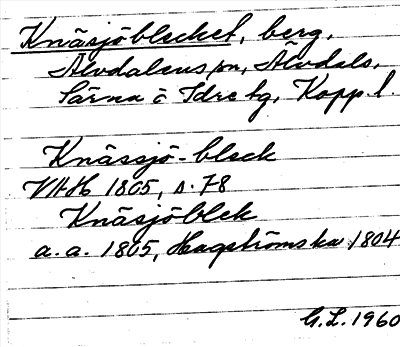 Knäsjöblecket, berg,
Älvdalens sn, Älvdals,
Särna o Idre tg, Kopp. l.
Knässjö-bleck
VAH 1805, s. 78
Knäsjöblek
a. a. 1805, Hagströms ka 1804
G.L. 1960